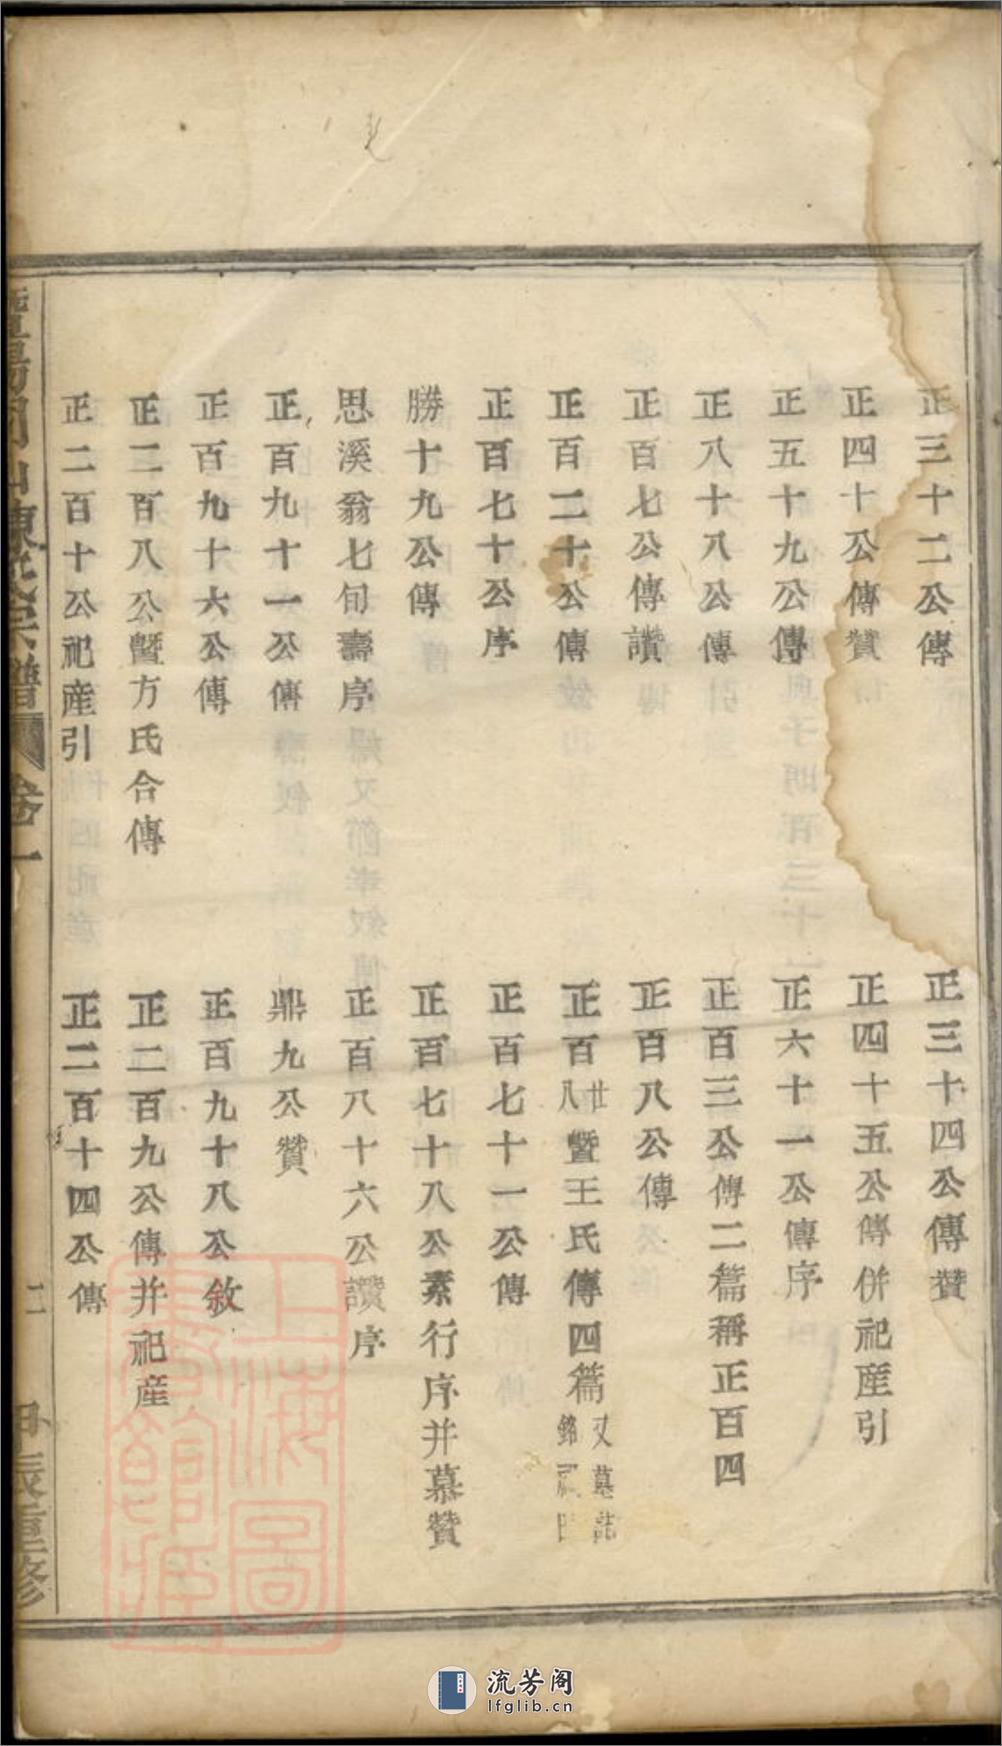 正三十二公傳
正三十四公傳贊
正四十公傳贊
正四十五公傳併祀産引
正五十九公傳
正六十一公傳序
正八十八公傳
正百三公傳二篇稱正百四
正百七公傳讚
正百八公傳
正百二十公傳
正百廿八暨王氏傳四篇又墓誌銘祀田
正百七十公序
正百七十一公傳
勝十九公傳
正百七十八公素行序并慕贊
思溪翁七旬壽序
正百八十六公讚序
正百九十一公傳
鼎九公贊
正百九十六公傳
正百九十八公敘
正二百八公暨方氏合傳
正二百九公傳并祀産
正二百十公祀産引
正二百十四公傳
陳氏宗譜 卷一
二
甲辰重修
上海圖書館藏
流芳阁
lfglib.cn